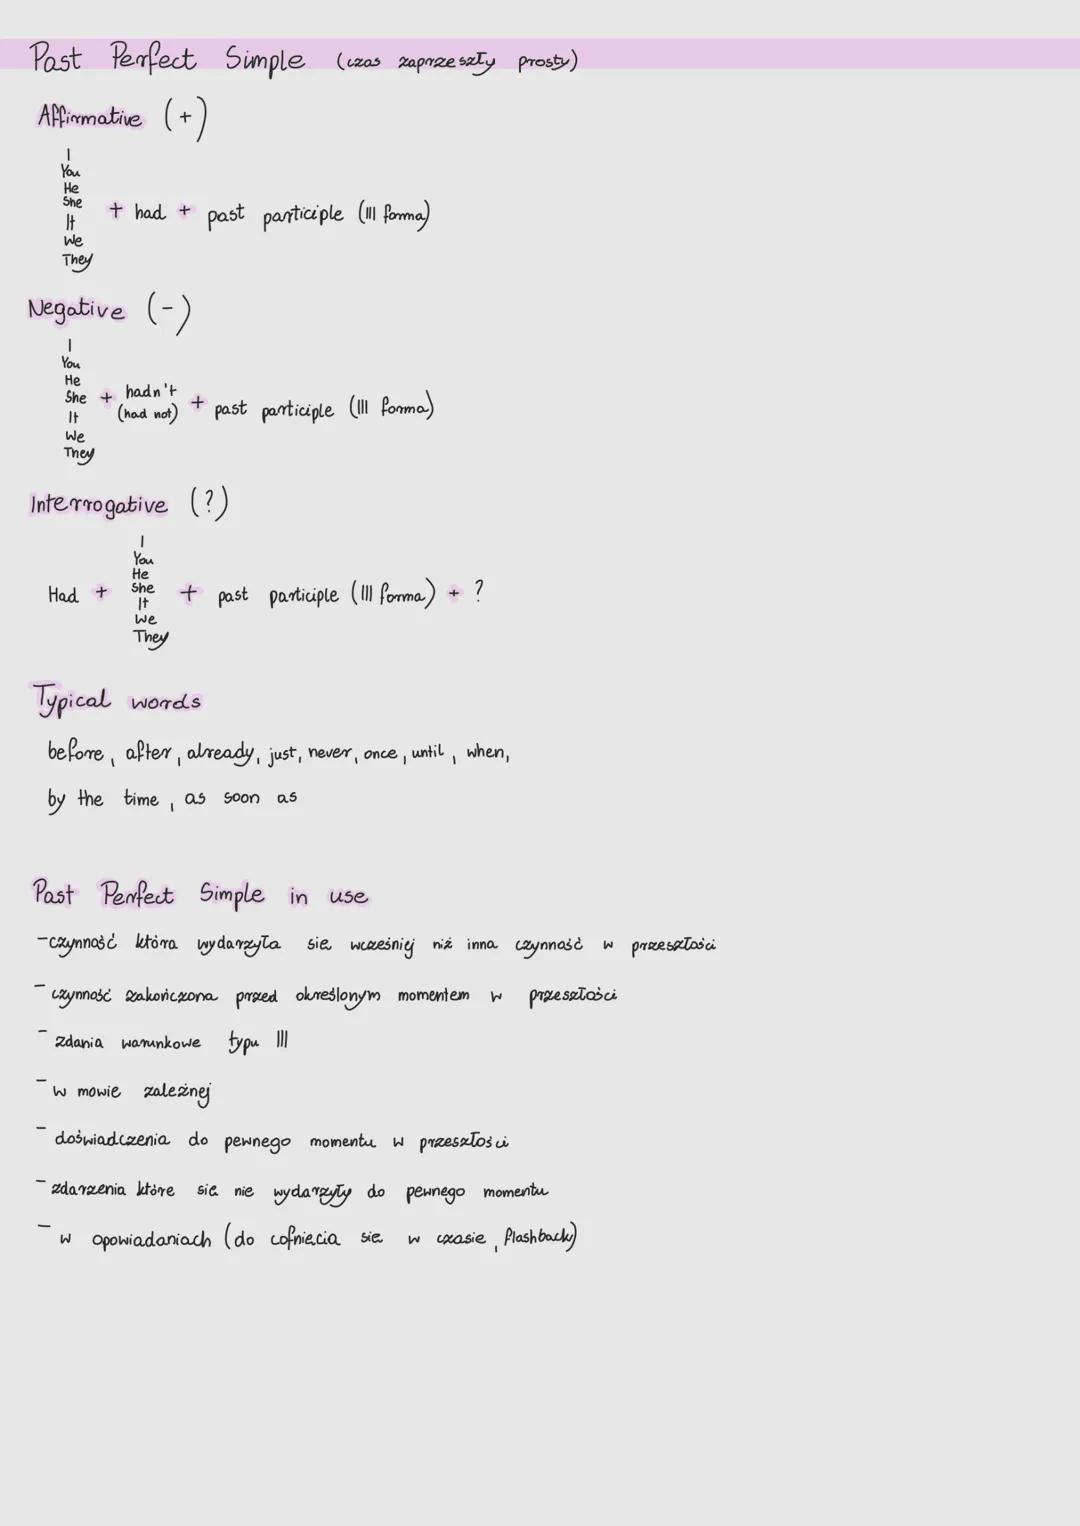 Past Perfect Simple (czas zaprzeszły prosty)
Affirmative (+)
I
You
He
She
It
We
They
+ had + past participle (III forma)
Negative (-)
I
You
He
She
It
We
They
+ hadn't (had not) + past participle (III forma)
Interrogative (?)
Had +
I
You
He
She
It
We
They
+ past participle (III forma) + ?
Typical words
before, after, already, just, never, once, until, when,
by the time, as soon as
Past Perfect Simple in use
-czynność która wydarzyła się wcześniej niż inna czynność w przeszłości
- czynność zakończona przed określonym momentem w przeszłości
- zdania warunkowe typu III
- w mowie zależnej
- doświadczenia do pewnego momentu w przeszłości
- zdarzenia które się nie wydarzyły do pewnego momentu
- w opowiadaniach (do cofnięcia się w czasie, flashback)